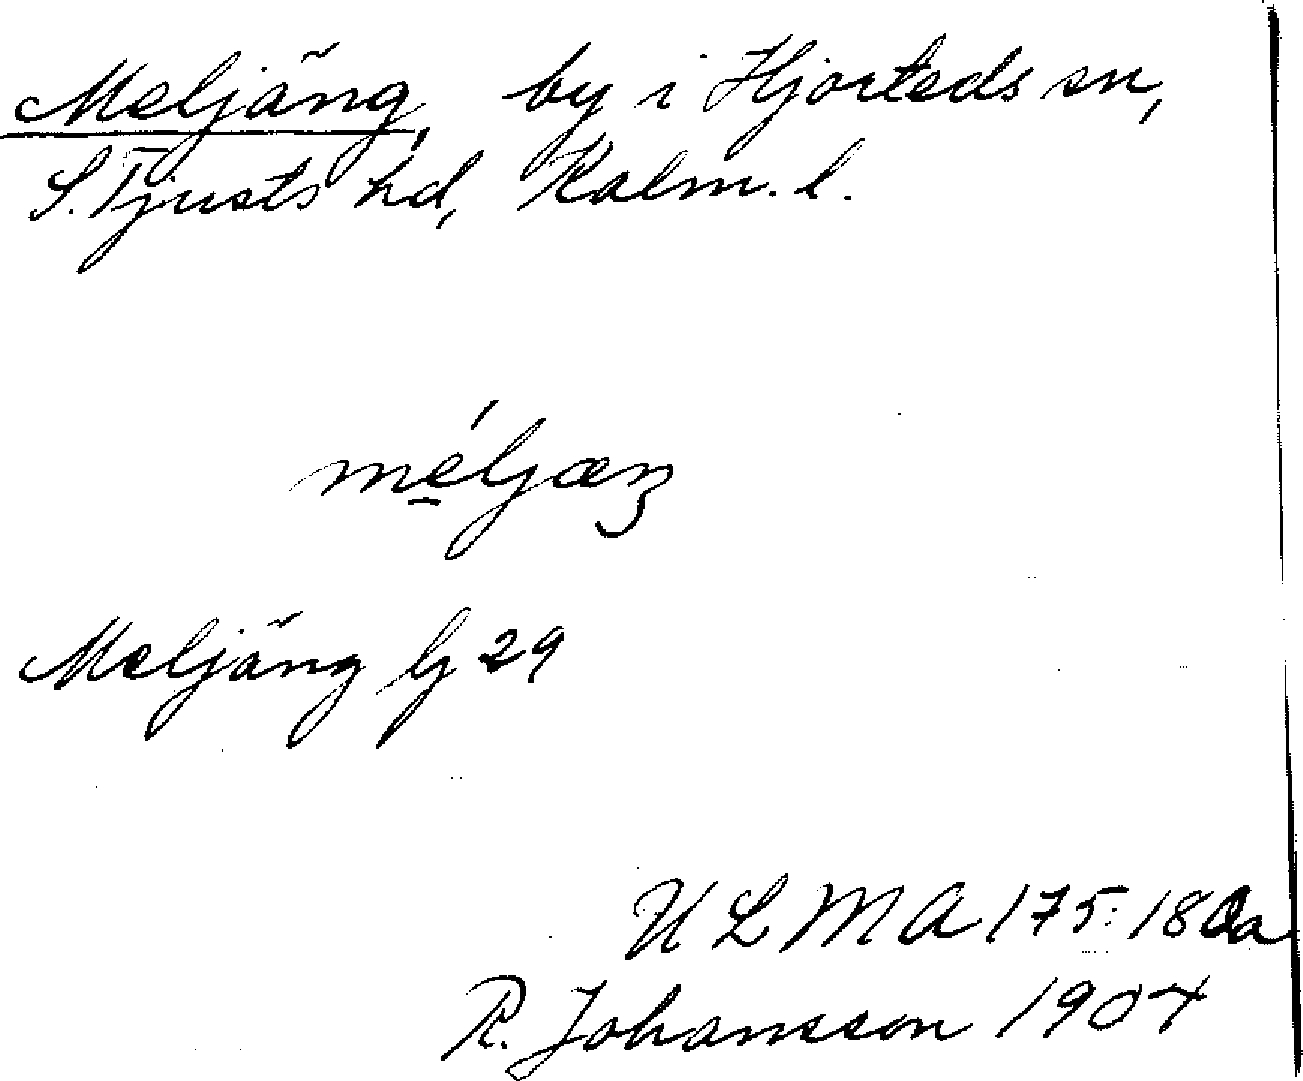 Meljäng, by i Hjorteds sn,
S. Tjusts hd, Kalm. l.
méljæŋ
Meljäng Gj 29
ULMA 175:180a
R. Johansson 1904